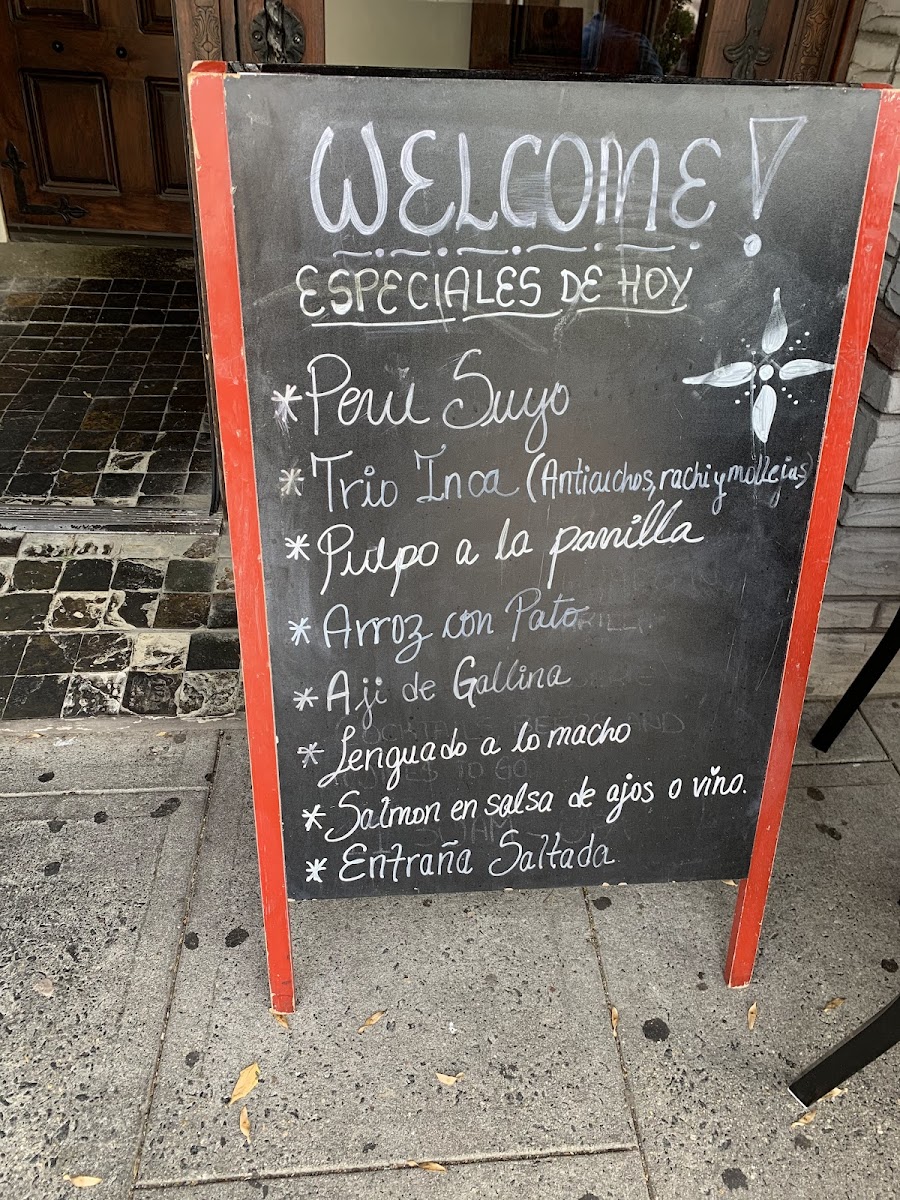 WELCOME!
ESPECIALES DE HOY
* Perú Suyo
* Trio Inca (Anticuchos, rachi y mollejas)
* Pulpo a la parrilla
* Arroz con Pato
* Aji de Gallina
* Lenguado a lo macho
* Salmon en salsa de ajos o vino.
* Entraña Saltada